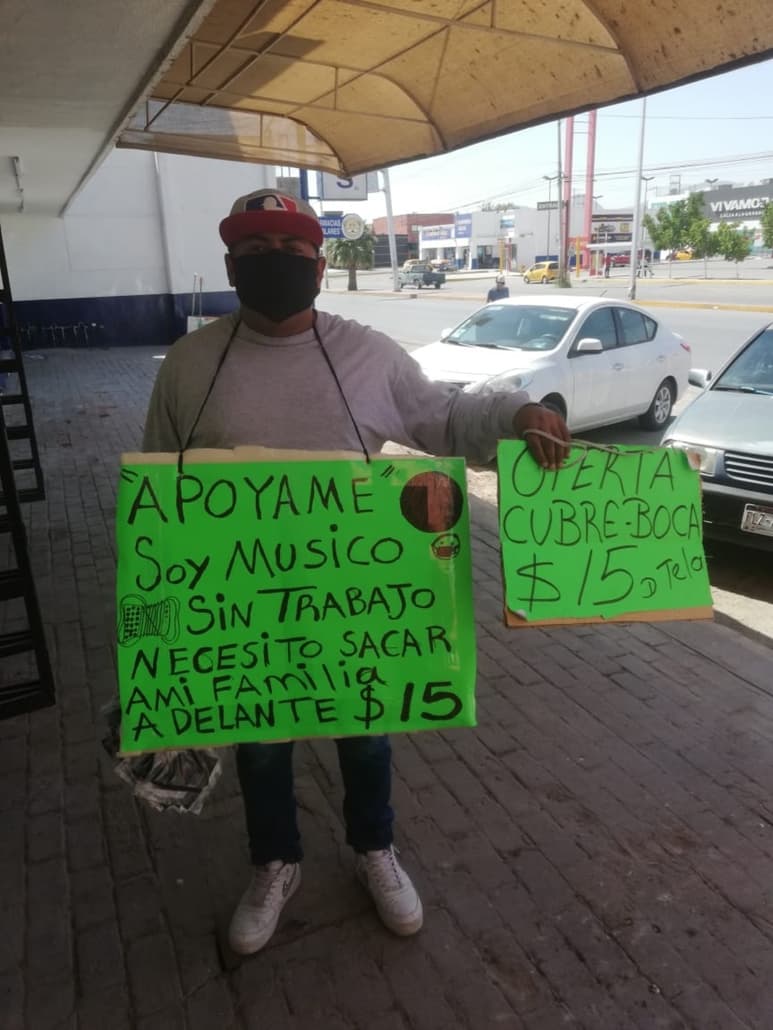 "APOYAME"
SOY MUSICO
SIN TRABAJO
NECESITO SACAR
AMI FAMILIA
ADELANTE $15
OFERTA
CUBRE-BOCA
$15 D Tela
VIVAMOS
S